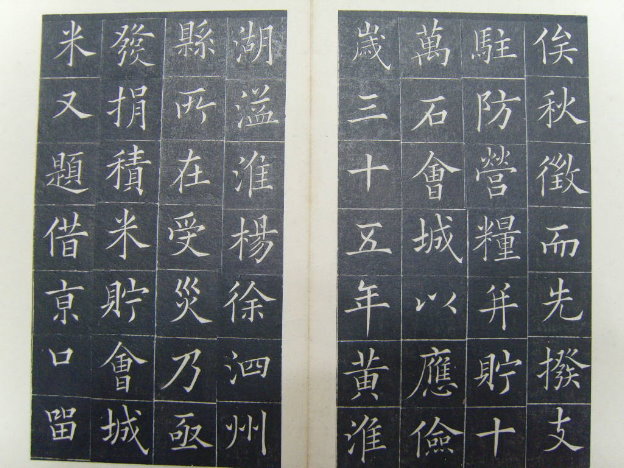 俟秋徵而先撥支
駐防營糧并貯十
萬石會城以應儉
歲三十五年黃淮
湖溢淮楊徐泗州
縣所在受災乃亟
發捐積米貯會城
米又題借亰口留